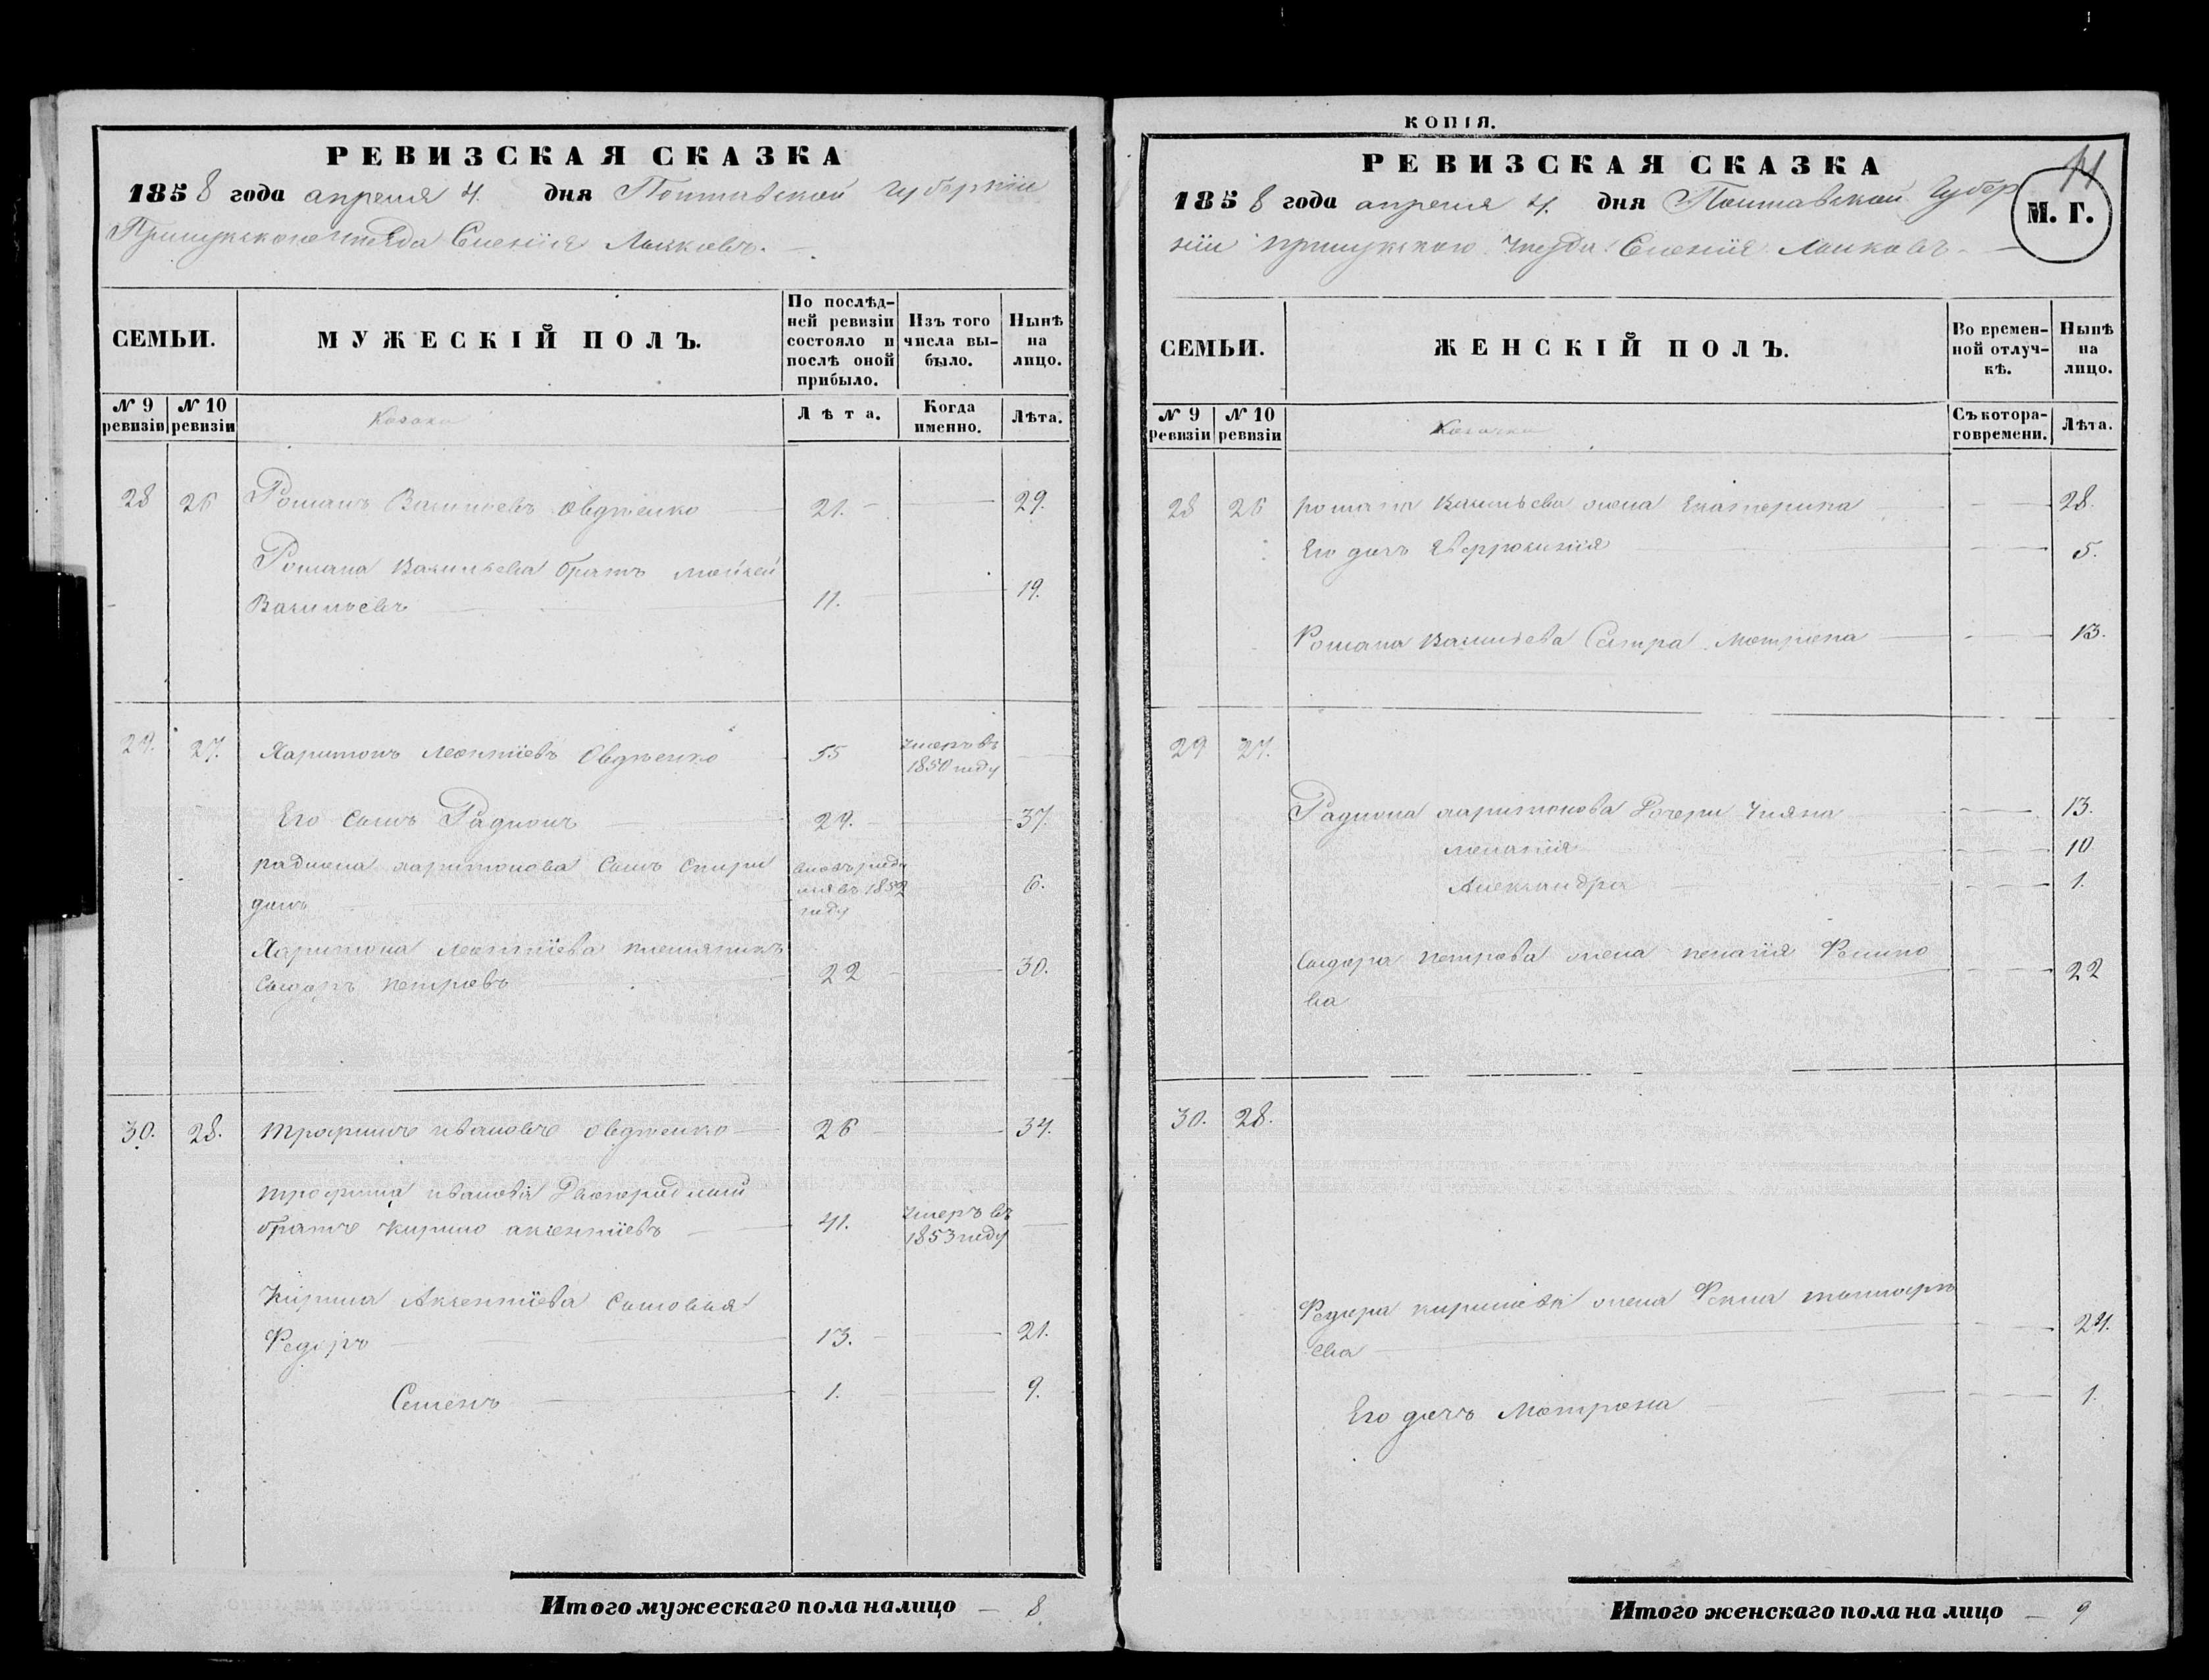 РЕВИЗСКАЯ СКАЗКА
1858 года апреля 4. дня Полтавской Губернiи
Прилукского уезда Селенiя Мамковъ.
СЕМЬИ.
МУЖЕСКІЙ ПОЛЪ.
По послѣд-
ней ревизіи
состояло и
послѣ оной
прибыло.
Изъ того
числа вы-
было.
Нынѣ
на
лицо.
№ 9
ревизіи
№ 10
ревизіи
Козаки
Лѣта.
Когда
именно.
Лѣта.
28 26 Романъ Васильевъ Овдѣенко 21. 29.
Романа Васильева братъ Мойсей
Васильевъ 11. 19.
29. 27. Харитонъ Леонтіевъ Овдѣенко 55 умеръ въ
1850 году
Его сынъ Радионъ 29. 37.
Радиона Харитонова Сынъ Спири
донъ вновь роди
лся въ 1852
году 6.
Харитона Леонтіева племяникъ
Сидоръ Петровъ 22 30.
30. 28. Трофимъ Ивановъ Овдѣенко 26 34.
Трофима Иванова Двоюродный
братъ Кирило Аксентіевъ 41. умеръ въ
1853 году
Кирила Аксентіева Сыновья
Федоръ 13. 21.
Семенъ 1. 9.
Итого мужескаго пола налицо 8
КОПІЯ.
РЕВИЗСКАЯ СКАЗКА
1858 года апреля 4. дня Полтавской Губер
нiи Прилукского уезда Селенiя
М. Г.
11
СЕМЬИ.
ЖЕНСКІЙ ПОЛЪ.
Во времен-
ной отлуч-
кѣ.
Нынѣ
на
лицо.
№ 9
ревизіи
№ 10
ревизіи
Козачки
Съ котора-
го времени.
Лѣта.
28 26 Романа Васильева жена Екатерина 28.
Его дочь Евфросинія 5.
Романа Васильева Сестра Мотрона 13.
29 27.
Радиона Харитонова Дочери Уляна 13.
Меланія 10
Александра 1.
Сидора Петрова жена Пелагія Филипо
ва 22
30. 28.
Федора Кирилова жена Фекла
ева 24.
Его дочь Мотрона 1.
Итого женскаго пола на лицо 9